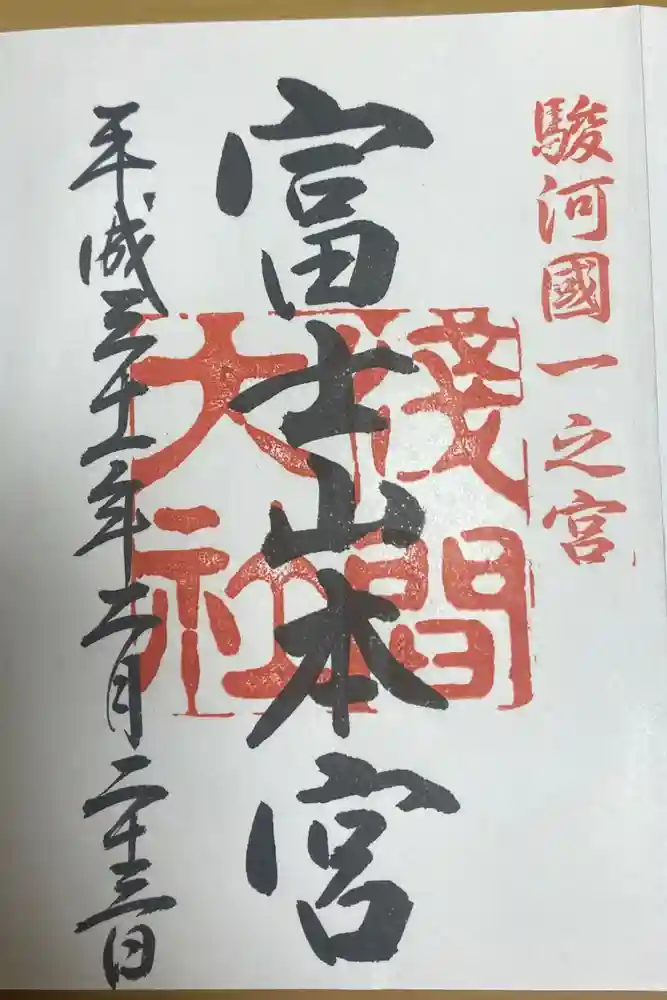 駿河國一之宮
富士山本宮
淺間大社
平成三十一年二月二十三日